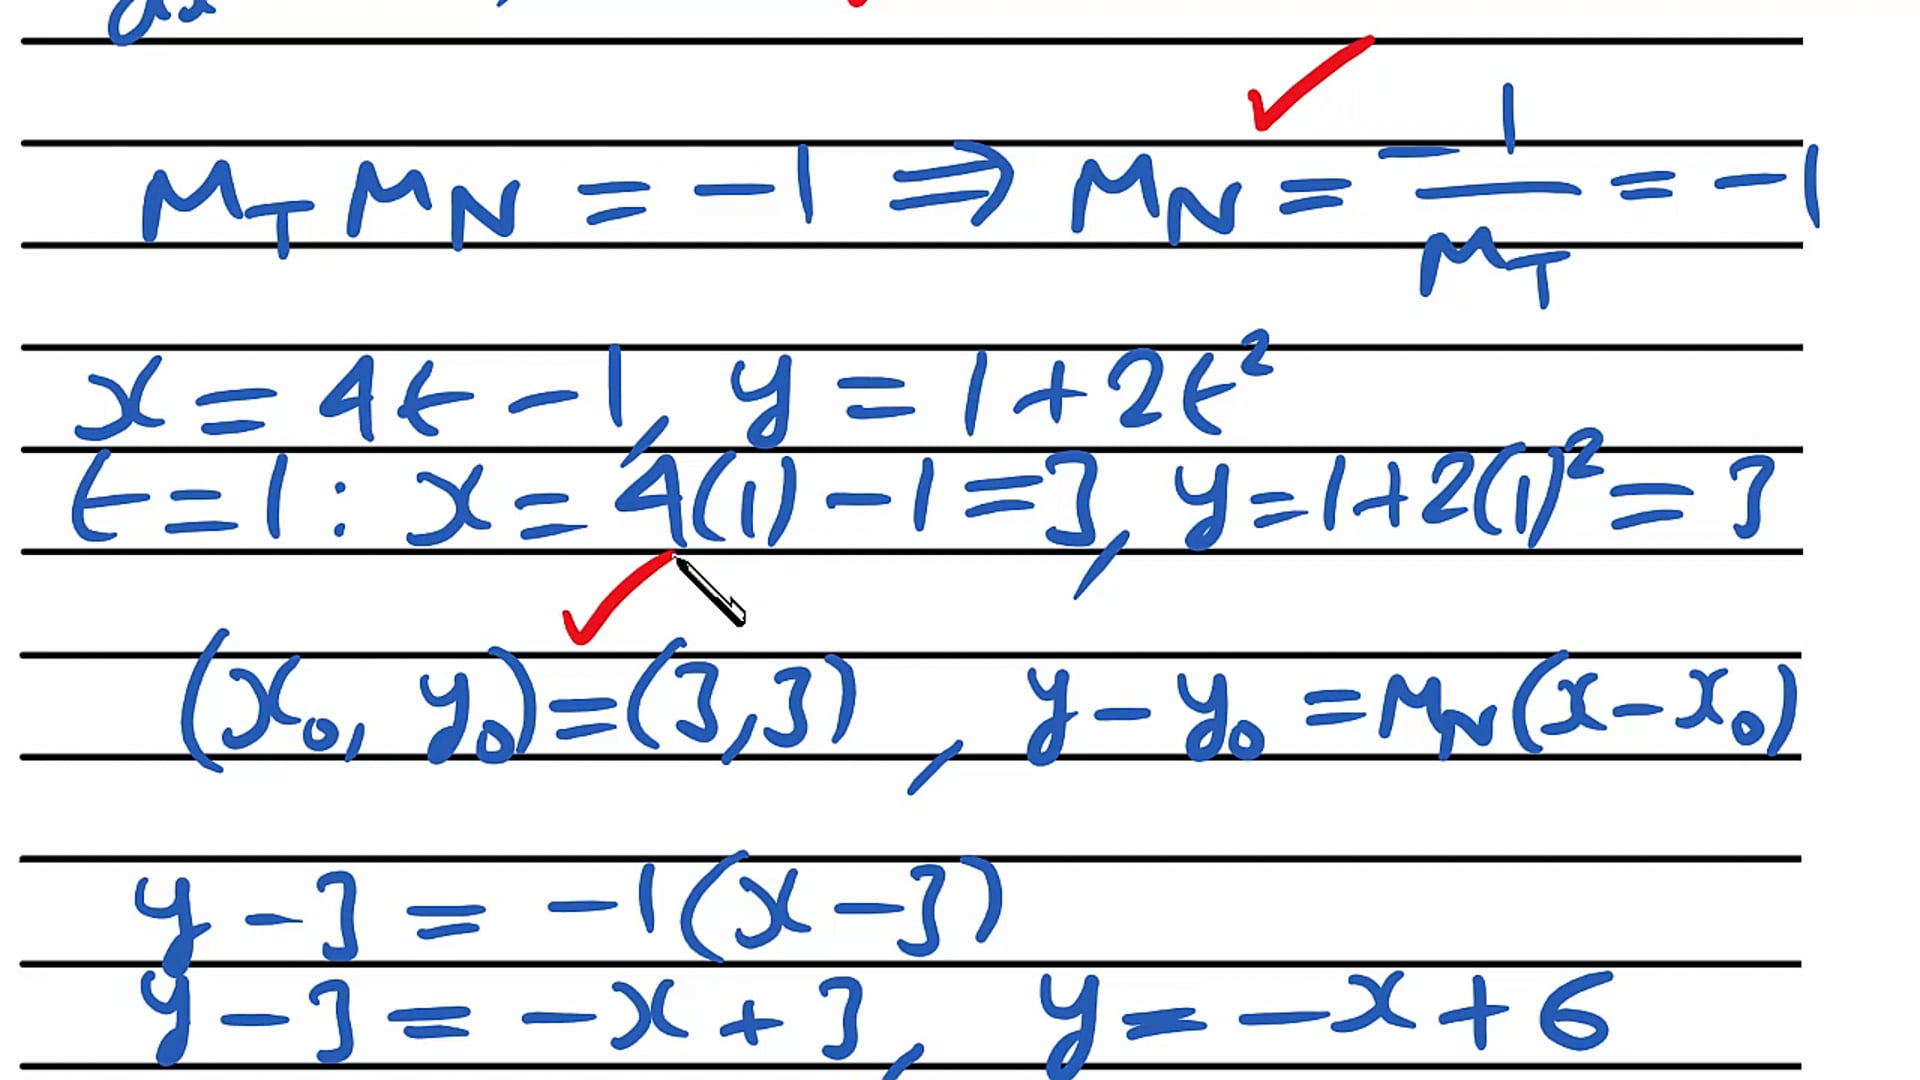 M_T M_N = -1 ⇒ M_N = -1/M_T = -1
x = 4t - 1, y = 1 + 2t²
t = 1 : x = 4(1) - 1 = 3, y = 1 + 2(1)² = 3
(x₀, y₀) = (3,3), y - y₀ = M_N(x - x₀)
y - 3 = -1(x - 3)
y - 3 = -x + 3, y = -x + 6